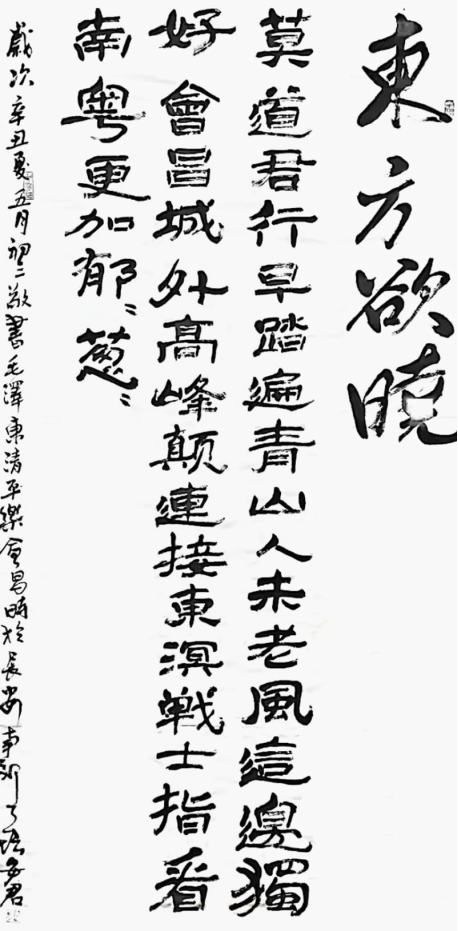 東方欲曉
莫道君行早踏遍青山人未老風這邊獨
好會昌城外高峰顛連接東溟戰士指看
南粤更加郁〻葱〻
歲次辛丑夏五月初二敬書毛澤東清平樂會昌時於長安南郊